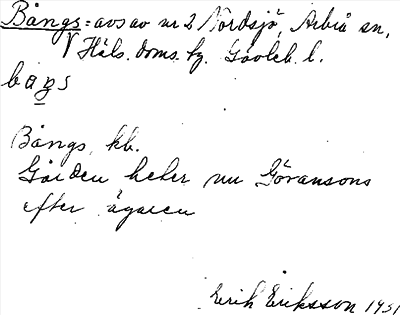 Bångs = avs av nr 2 Nordsjö, Arbrå sn,
V Häls. doms. tg. Gävleb. l.
baŋs
Bångs, kb.
Gården heter nu Göransons
efter ägaren
Erik Eriksson 1931